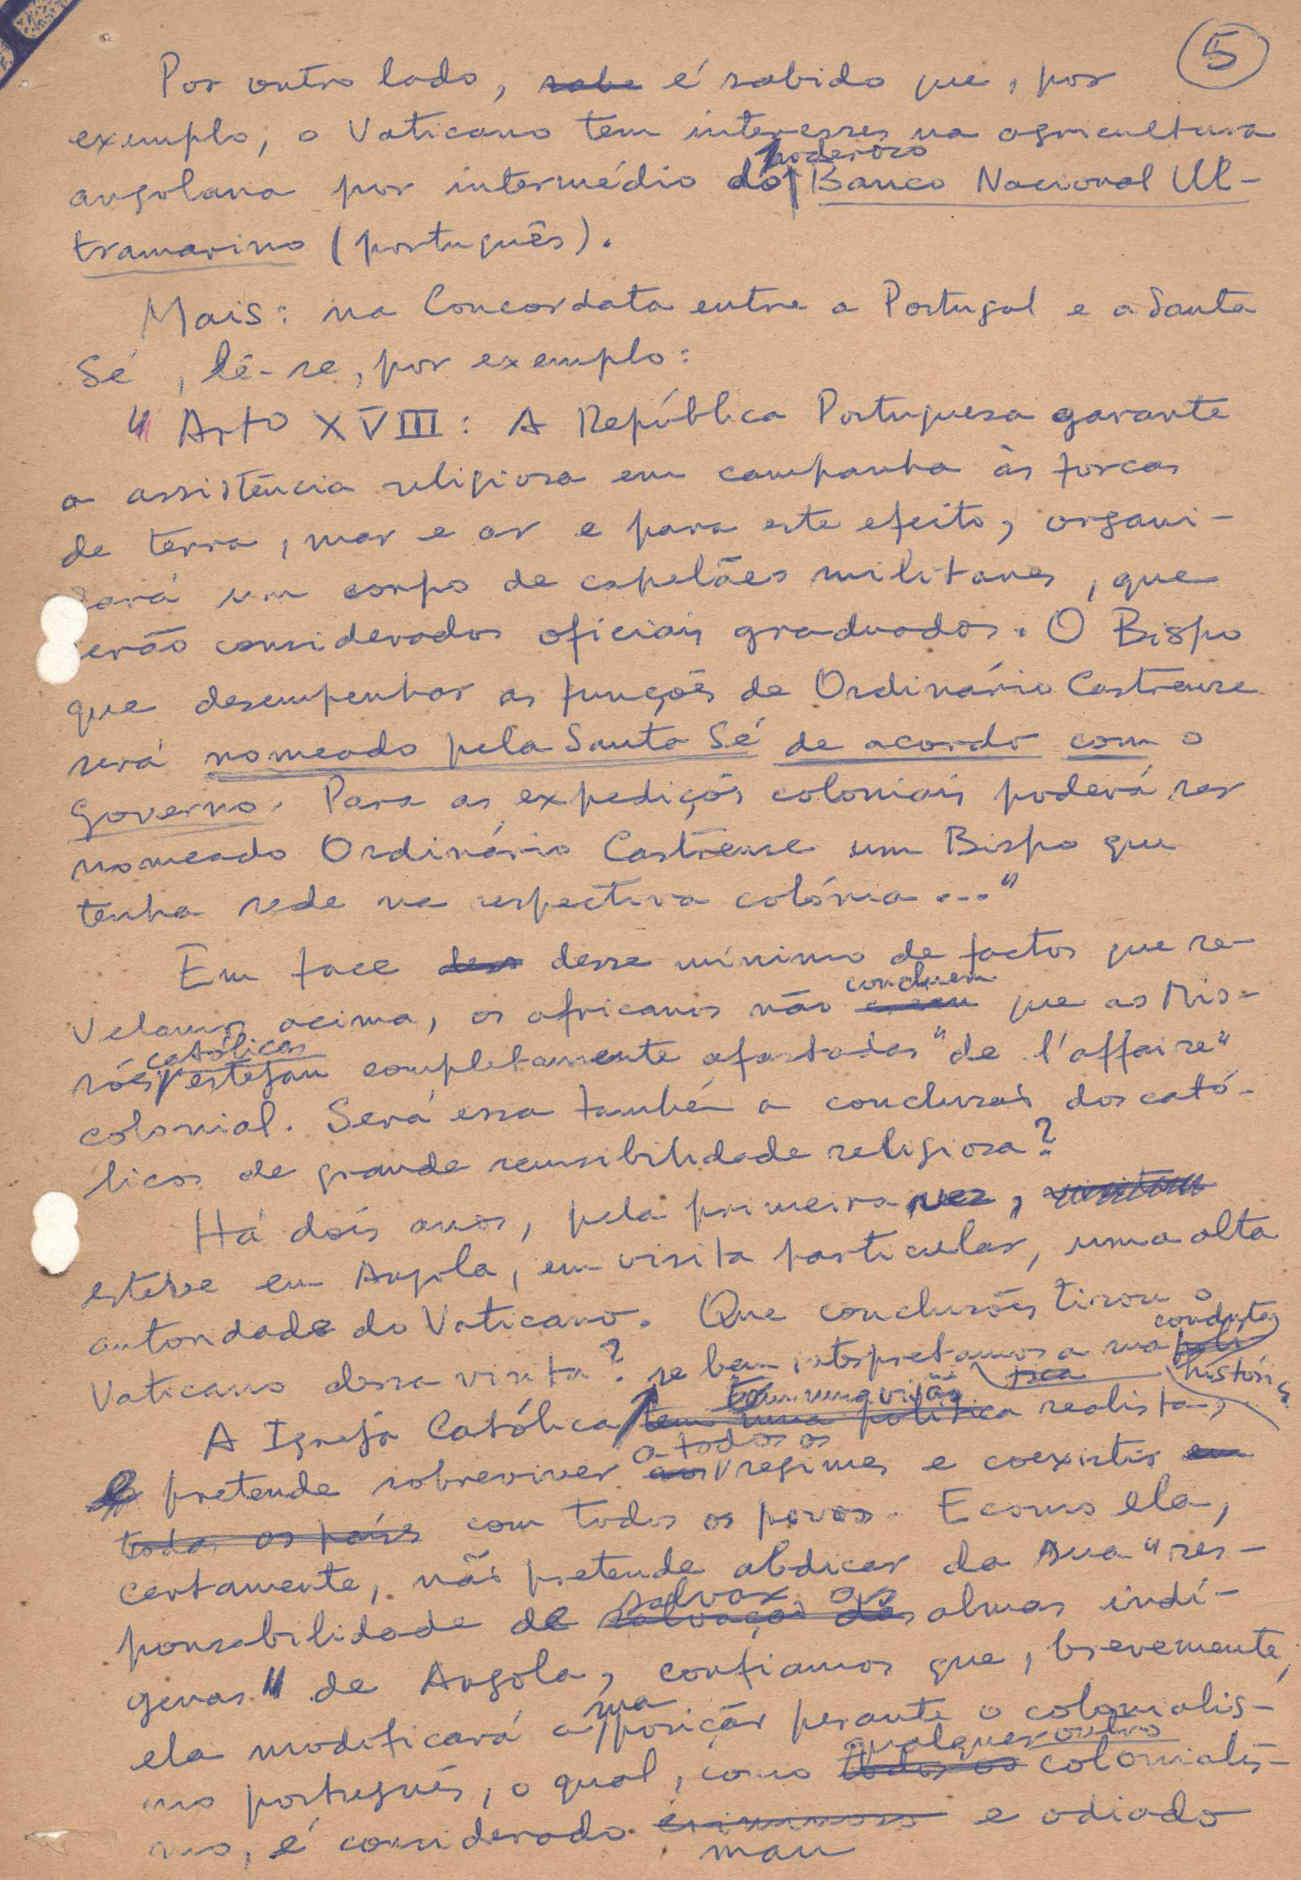 5
Por outro lado, sabe é sabido que, por
exemplo, o Vaticano tem interesses na agricultura
poderoso
angolana por intermédio do Banco Nacional Ul-
tramarino (português).
Mais: na Concordata entre a Portugal e a Santa
Sé, lê-se, por exemplo:
"Artº XVIII: A República Portuguesa garante
a assistência religiosa em campanha às forças
de terra, mar e ar e para este efeito, organi-
sará um corpo de capelães militares, que
serão considerados oficiais graduados. O Bispo
que desempenhar as funções de Ordinário Castrense
será nomeado pela Santa Sé de acordo com o
Governo. Para as expedições coloniais poderá ser
nomeado Ordinário Castrense um Bispo que
tenha sede na respectiva colónia..."
Em face desse mínimo de factos que re-
concluem
velamos acima, os africanos não creem que as Mis-
católicas
sões estejam completamente afastadas "de l'affaire"
colonial. Será essa também a conclusão dos cató-
licos de grande sensibilidade religiosa?
Há dois anos, pela primeira vez,
esteve em Angola, em visita particular, uma alta
autoridade do Vaticano. Que conclusões tirou o
conduta
Vaticano dessa visita? se bem interpretamos a sua
histórica
tem uma visão
A Igreja Católica tem uma política realista,
a todos os
e pretende sobreviver aos regimes e coexistir em
todos os países com todos os povos. E como ela,
certamente, não pretende abdicar da sua "res-
salvar as
ponsabilidade de salvação das almas indí-
genas" de Angola, confiamos que, brevemente,
sua
ela modificará a posição perante o colonialis-
qualquer outro
mo português, o qual, como todos os colonialis-
mo, é considerado criminoso e odiado
mau